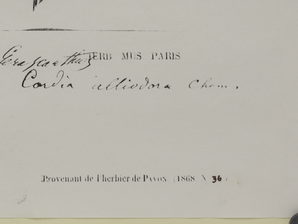 HERB MUS PARIS
Cordia alliodora Cham.
Provenant de l'herbier de PAVON (1868 N 36)